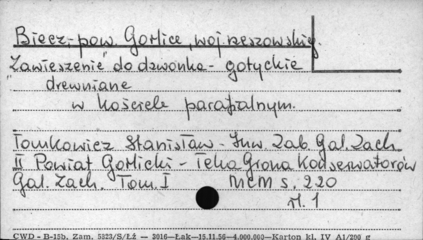 Biecz, pow. Gorlice, woj. rzeszowskie.
"Zawieszenie" do dzwonka - gotyckie
drewniane
w kościele parafialnym.
Tomkowicz Stanisław - Inw. Zab. Gal. Zach.
II Powiat Gorlicki - Teka Grona Konserwatorów
Gal. Zach. Tom. I MCM s. 220
il. 1
CWD - B-15b. Zam. 5323/S/Łź — 3016—Łak—15.11.56—4.000.000—Karton kl. IV A1/200 g